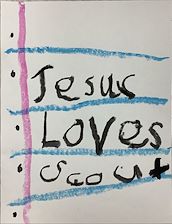 Jesus
Loves
Scout